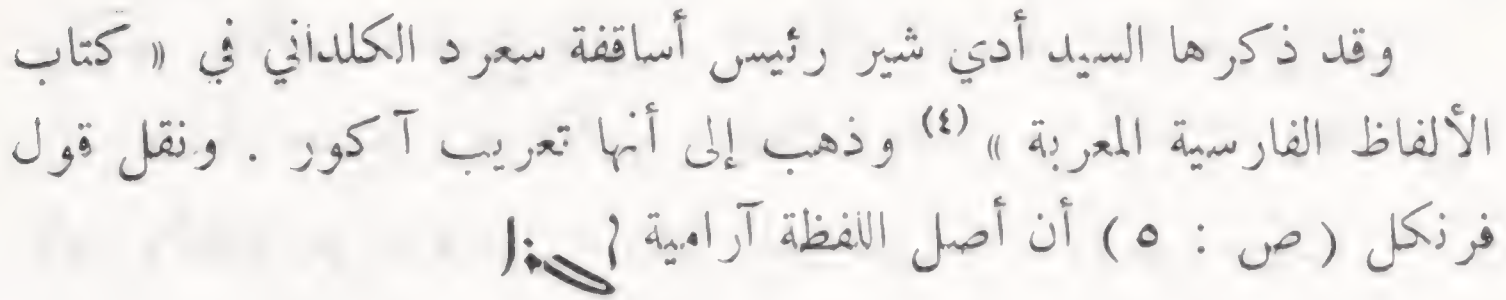 وقد ذكرها السيد أدي شير رئيس أساقفة سعرد الكلداني في « كتاب
الألفاظ الفارسية المعربة » (٤) وذهب إلى أنها تعريب آكور . ونقل قول
فرنكل ( ص : ٥ ) أن أصل اللفظة آرامية